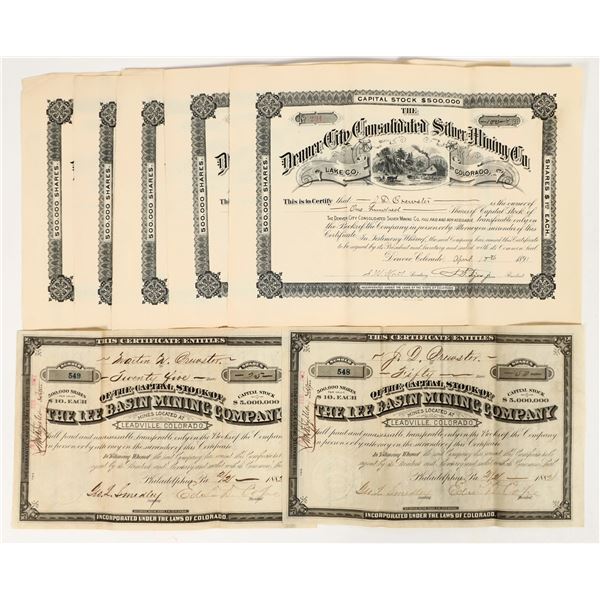 CAPITAL STOCK $500,000
THE
Denver City Consolidated Silver Mining Co.
LAKE CO. COLORADO.
500,000 SHARES.
500,000 SHARES.
500,000 SHARES.
500,000 SHARES.
500,000 SHARES.
SHARES $1 EACH.
This is to Certify that J. D. Crewster is the owner of
One Hundred Shares of Capital Stock of
THE DENVER CITY CONSOLIDATED SILVER MINING CO. FULL PAID AND NON ASSESSABLE, transferable only on
the Books of the Company in person or by Attorney on surrender of this
Certificate. In Testimony Whereof, the said Company has caused this Certificate
to be signed by its President and Secretary and sealed with its Common Seal.
Denver Colorado April 189
Secretary President
INCORPORATED UNDER THE LAWS OF THE STATE OF COLORADO
THIS CERTIFICATE ENTITLES
NUMBER
549
Martin W. Crewster
SHARES
25
Twenty Five
OF THE CAPITAL STOCK OF
500,000 SHARES
$10. EACH
CAPITAL STOCK
$5,000,000
THE LEE BASIN MINING COMPANY
MINES LOCATED AT
LEADVILLE, COLORADO.
full paid and unassessable, transferable only on the Books of the Company
in person or by attorney on the surrender of this Certificate.
In Testimony Whereof
Philadelphia, Pa. 188
INCORPORATED UNDER THE LAWS OF COLORADO.
THIS CERTIFICATE ENTITLES
NUMBER
548
J. D. Crewster
SHARES
50
Fifty
OF THE CAPITAL STOCK OF
500,000 SHARES
$10. EACH
CAPITAL STOCK
$5,000,000
THE LEE BASIN MINING COMPANY
MINES LOCATED AT
LEADVILLE, COLORADO.
full paid and unassessable, transferable only on the Books of the Company
in person or by attorney on the surrender of this Certificate.
In Testimony Whereof
Philadelphia, Pa. 188
INCORPORATED UNDER THE LAWS OF COLORADO.